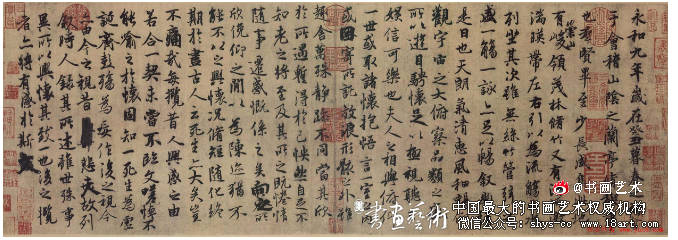 永和九年歲在癸丑暮春
于會稽山陰之蘭亭
也群賢畢至少長咸集
崇山
有峻領茂林脩竹又有清
湍暎帶左右引以為流觴
列坐其次雖無絲竹管弦
盛一觴一詠亦足以暢敘幽
是日也天朗氣清惠風和
觀宇宙之大俯察品類之
所以遊目騁懷足以極視聽
娛信可樂也夫人之相與俯仰
一世或取諸懷抱悟言一室之
或因寄所託放浪形骸之外雖
趣舍萬殊靜躁不同當其欣
於所遇暫得於己快然自足不
知老之將至及其所之既惓情
隨事遷感慨係之矣向之所
欣俛仰之閒以為陳迹猶不
能不以之興懷況脩短隨化終
期於盡古人云死生亦大矣豈
不痛哉每攬昔人興感之由
若合一契未嘗不臨文嗟悼不
能喻之於懷固知一死生為虛
誕齊彭殤為妄作後之視今
亦由今之視昔悲夫故列
敘時人錄其所述雖世殊事
異所以興懷其致一也後之攬
者亦將有感於斯文
書畫藝術
@书画艺术
中国最大的书画艺术权威机构
微信公众号: shys-cc www.18art.com